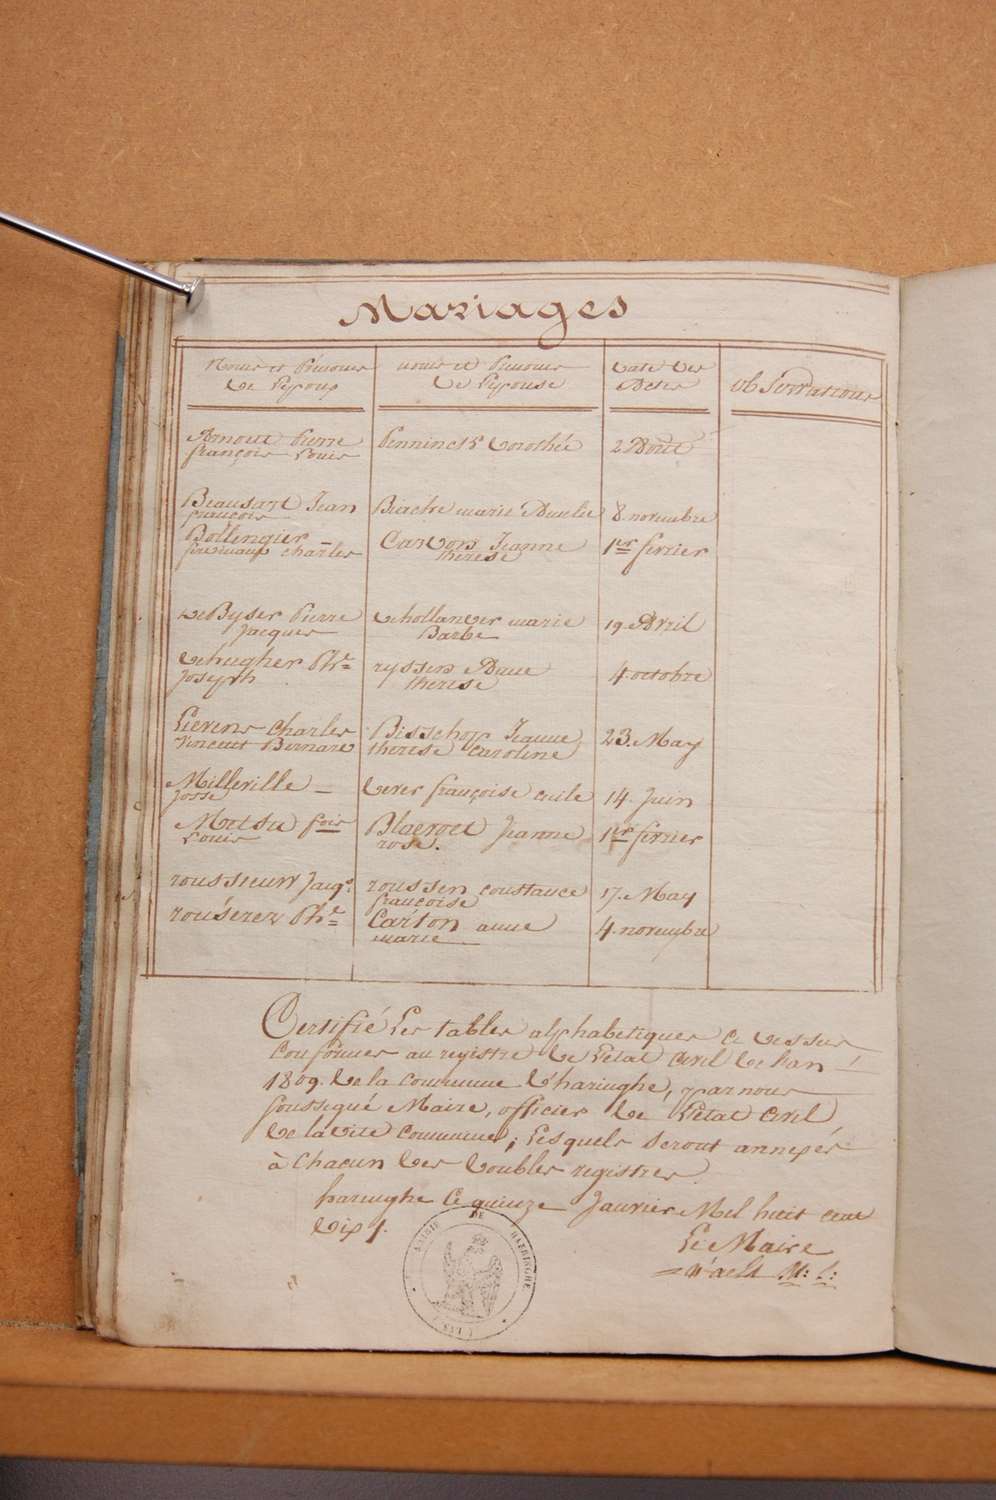 Mariages
Noms et Prénoms noms et Prenoms Date des observations
de L'epoux de L'epouse Actes
Arnout Pierre Penninck Dorothée 2 Aout
françois Louis
Beausart Jean Biache marie Amelie 8. novembre
francois
Bollengier - Cartons Jeanne 1er fevrier
firminus charles therese
de Byser Pierre dehollander marie 19. Avril
Jacques Barbe
dehugher Phe ryssen Anne 4. octobre
Joseph therese
Lievens Charles Bisschop Jeanne 23. May
Vincent Bernard therese Caroline
Milleville - dever françoise cecile 14. Juin
Josse
fois Blaevoet Jeanne 1er fevrier
Louis rose.
roussieuw Jaqs. roussen constance 17. May
françoise
rouserez Phe Carton anne 4. novembre
marie
Certifié Les tables alphabetiques ci dessus
conformes au registre de L'etat civil de l'an
1809. de la commune d'haringhe, par nous
soussigné Maire, officier de L'etat civil
de la dite commune; Lesquels seront annexés
à chacun des doubles registres.
haringhe Ce quinze Janvier Mil huit cent
dix /.
MAIRIE DE HARINGHE
Le Maire